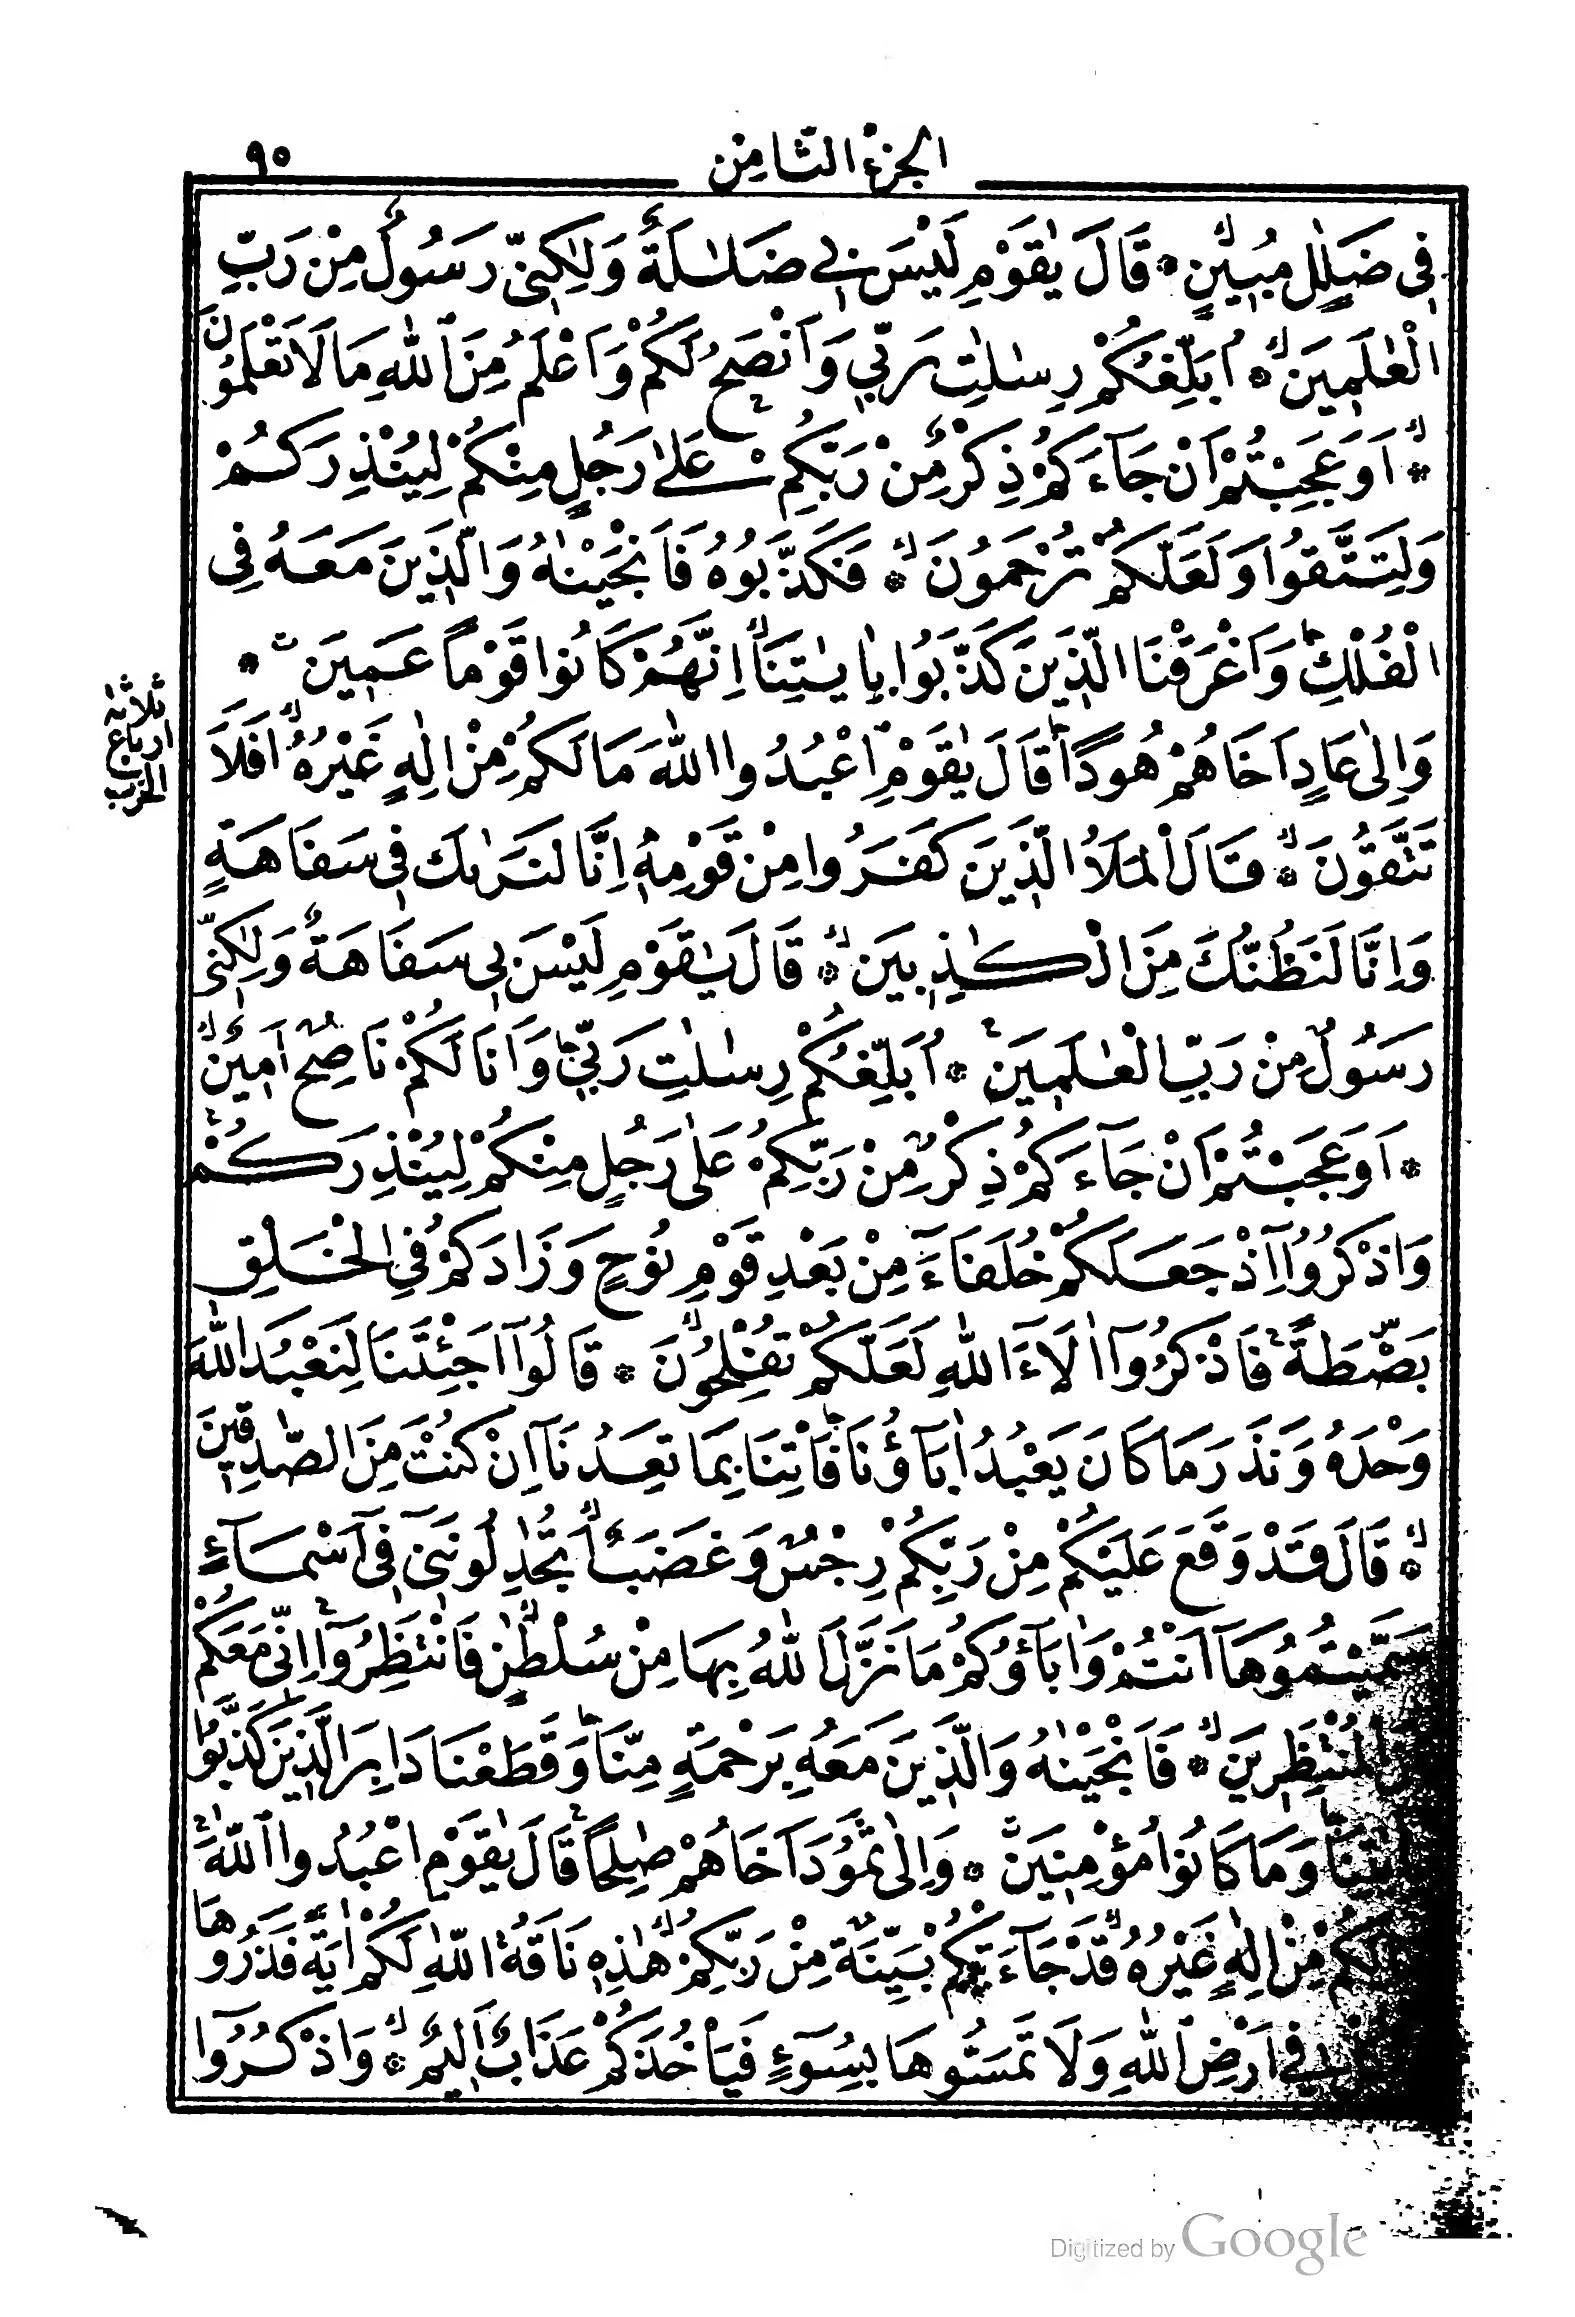 ٩٥
الجُزْءُ الثَّامِنْ
فِى ضَلٰلٍ مُبِينٍ ۞ قَالَ يٰقَوْمِ لَيْسَ بِى ضَلٰلَةٌ وَلٰكِنِّى رَسُولٌ مِنْ رَبِّ
الْعٰلَمِينَ ۞ اُبَلِّغُكُمْ رِسٰلٰتِ رَبِّى وَاَنْصَحُ لَكُمْ وَاَعْلَمُ مِنَ اللّٰهِ مَا لَا تَعْلَمُونَ
۞ اَوَعَجِبْتُمْ اَنْ جَآءَكُمْ ذِكْرٌ مِنْ رَبِّكُمْ عَلٰى رَجُلٍ مِنْكُمْ لِيُنْذِرَكُمْ
وَلِتَتَّقُوا وَلَعَلَّكُمْ تُرْحَمُونَ ۞ فَكَذَّبُوهُ فَاَنْجَيْنٰهُ وَالَّذِينَ مَعَهُ فِى
الْفُلْكِ وَاَغْرَقْنَا الَّذِينَ كَذَّبُوا بِاٰيٰتِنَا اِنَّهُمْ كَانُوا قَوْمًا عَمِينَ ۞
ثلاثة
ارباع
الحزب
وَاِلٰى عَادٍ اَخَاهُمْ هُودًا قَالَ يٰقَوْمِ اعْبُدُوا اللّٰهَ مَا لَكُمْ مِنْ اِلٰهٍ غَيْرُهُ اَفَلَا
تَتَّقُونَ ۞ قَالَ الْمَلَاُ الَّذِينَ كَفَرُوا مِنْ قَوْمِهٖ اِنَّا لَنَرٰىكَ فِى سَفَاهَةٍ
وَاِنَّا لَنَظُنُّكَ مِنَ الْكٰذِبِينَ ۞ قَالَ يٰقَوْمِ لَيْسَ بِى سَفَاهَةٌ وَلٰكِنِّى
رَسُولٌ مِنْ رَبِّ الْعٰلَمِينَ ۞ اُبَلِّغُكُمْ رِسٰلٰتِ رَبِّى وَاَنَا لَكُمْ نَاصِحٌ اَمِينٌ
۞ اَوَعَجِبْتُمْ اَنْ جَآءَكُمْ ذِكْرٌ مِنْ رَبِّكُمْ عَلٰى رَجُلٍ مِنْكُمْ لِيُنْذِرَكُمْ
وَاذْكُرُوا اِذْ جَعَلَكُمْ خُلَفَآءَ مِنْ بَعْدِ قَوْمِ نُوحٍ وَزَادَكُمْ فِى الْخَلْقِ
بَصْۜطَةً فَاذْكُرُوٓا اٰلَآءَ اللّٰهِ لَعَلَّكُمْ تُفْلِحُونَ ۞ قَالُوٓا اَجِئْتَنَا لِنَعْبُدَ اللّٰهَ
وَحْدَهُ وَنَذَرَ مَا كَانَ يَعْبُدُ اٰبَآؤُنَا فَاْتِنَا بِمَا تَعِدُنَآ اِنْ كُنْتَ مِنَ الصّٰدِقِينَ
۞ قَالَ قَدْ وَقَعَ عَلَيْكُمْ مِنْ رَبِّكُمْ رِجْسٌ وَغَضَبٌ اَتُجٰدِلُونَنِى فِىٓ اَسْمَآءٍ
سَمَّيْتُمُوهَآ اَنْتُمْ وَاٰبَآؤُكُمْ مَا نَزَّلَ اللّٰهُ بِهَا مِنْ سُلْطٰنٍ فَانْتَظِرُوٓا اِنِّى مَعَكُمْ
الْمُنْتَظِرِينَ ۞ فَاَنْجَيْنٰهُ وَالَّذِينَ مَعَهُ بِرَحْمَةٍ مِنَّا وَقَطَعْنَا دَابِرَ الَّذِينَ كَذَّبُوا
وَمَا كَانُوا مُؤْمِنِينَ ۞ وَاِلٰى ثَمُودَ اَخَاهُمْ صٰلِحًا قَالَ يٰقَوْمِ اعْبُدُوا اللّٰهَ
لَكُمْ مِنْ اِلٰهٍ غَيْرُهُ قَدْ جَآءَتْكُمْ بَيِّنَةٌ مِنْ رَبِّكُمْ هٰذِهٖ نَاقَةُ اللّٰهِ لَكُمْ اٰيَةً فَذَرُوهَا
فِىٓ اَرْضِ اللّٰهِ وَلَا تَمَسُّوهَا بِسُوٓءٍ فَيَاْخُذَكُمْ عَذَابٌ اَلِيمٌ ۞ وَاذْكُرُوٓا
Digitized by Google